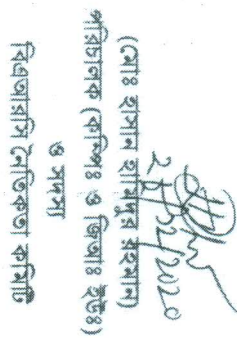 ২৮/১২/২০২০
(মোঃ হাসান হাফিজুর রহমান)
পরিচালক (কম্পিঃ ও জিআঃ ইউঃ)
ও সদস্য
বিএআরসি নৈতিকতা কমিটি